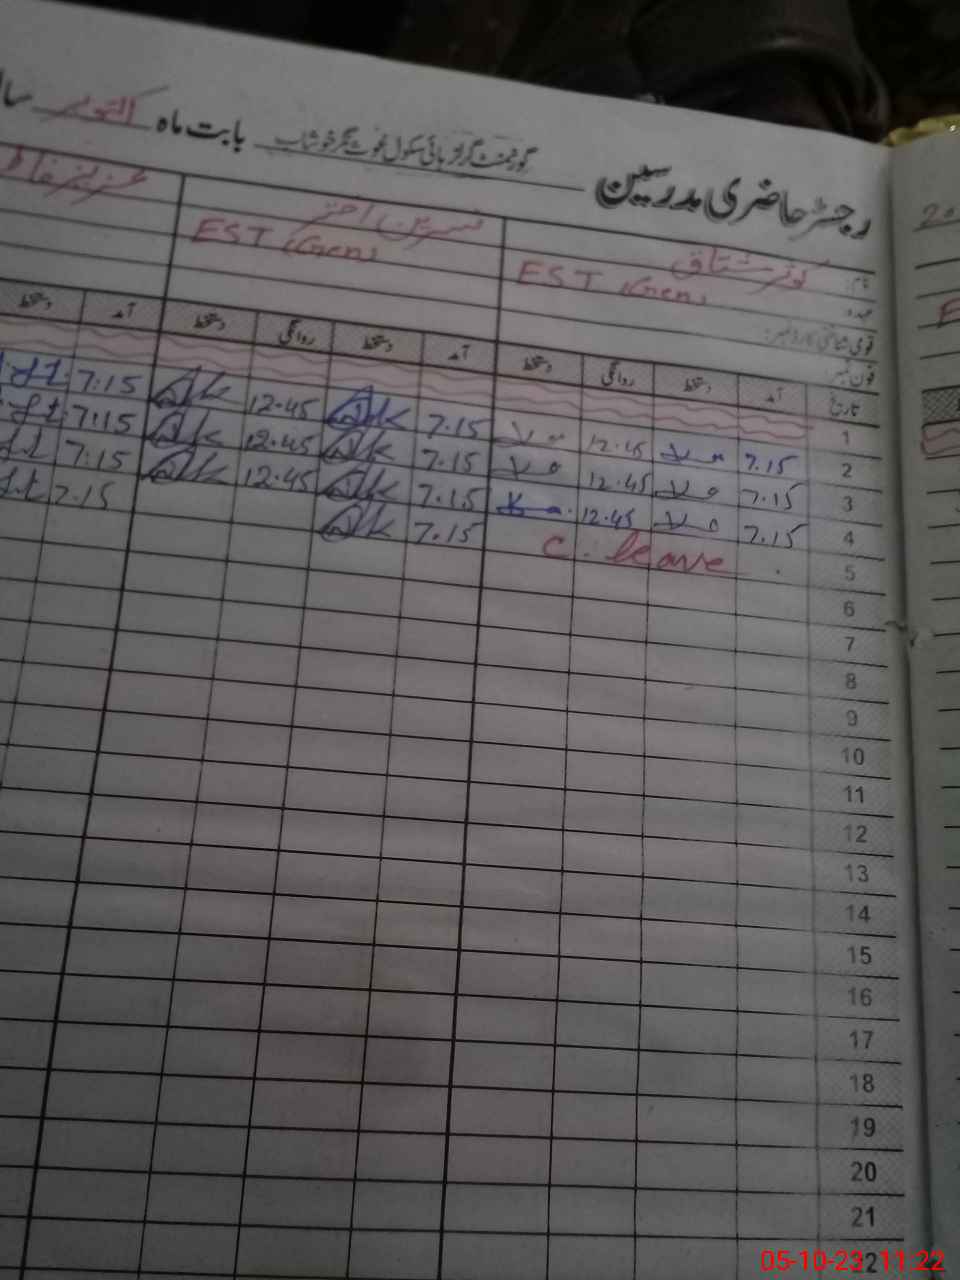 رجسٹر حاضری مدرسین گورنمنٹ گرلز ہائی سکول غوث نگر خوشاب بابت ماہ اکتوبر سا
نام: کوثر مشتاق نسرین اختر
عہدہ EST (Gen) EST (Gen)
قومی شناختی کارڈ نمبر:
فون نمبر:
تاریخ آمد دستخط روانگی دستخط آمد دستخط روانگی دستخط آمد دستخط
1
2 7.15 12.45 7.15 12.45 7:15
3 7.15 12.45 7.15 12.45 7:15
4 7.15 12.45 7.15 12.45 7:15
5 C. leave 7.15 7.15
6
7
8
9
10
11
12
13
14
15
16
17
18
19
20
21
05-10-23 11:22